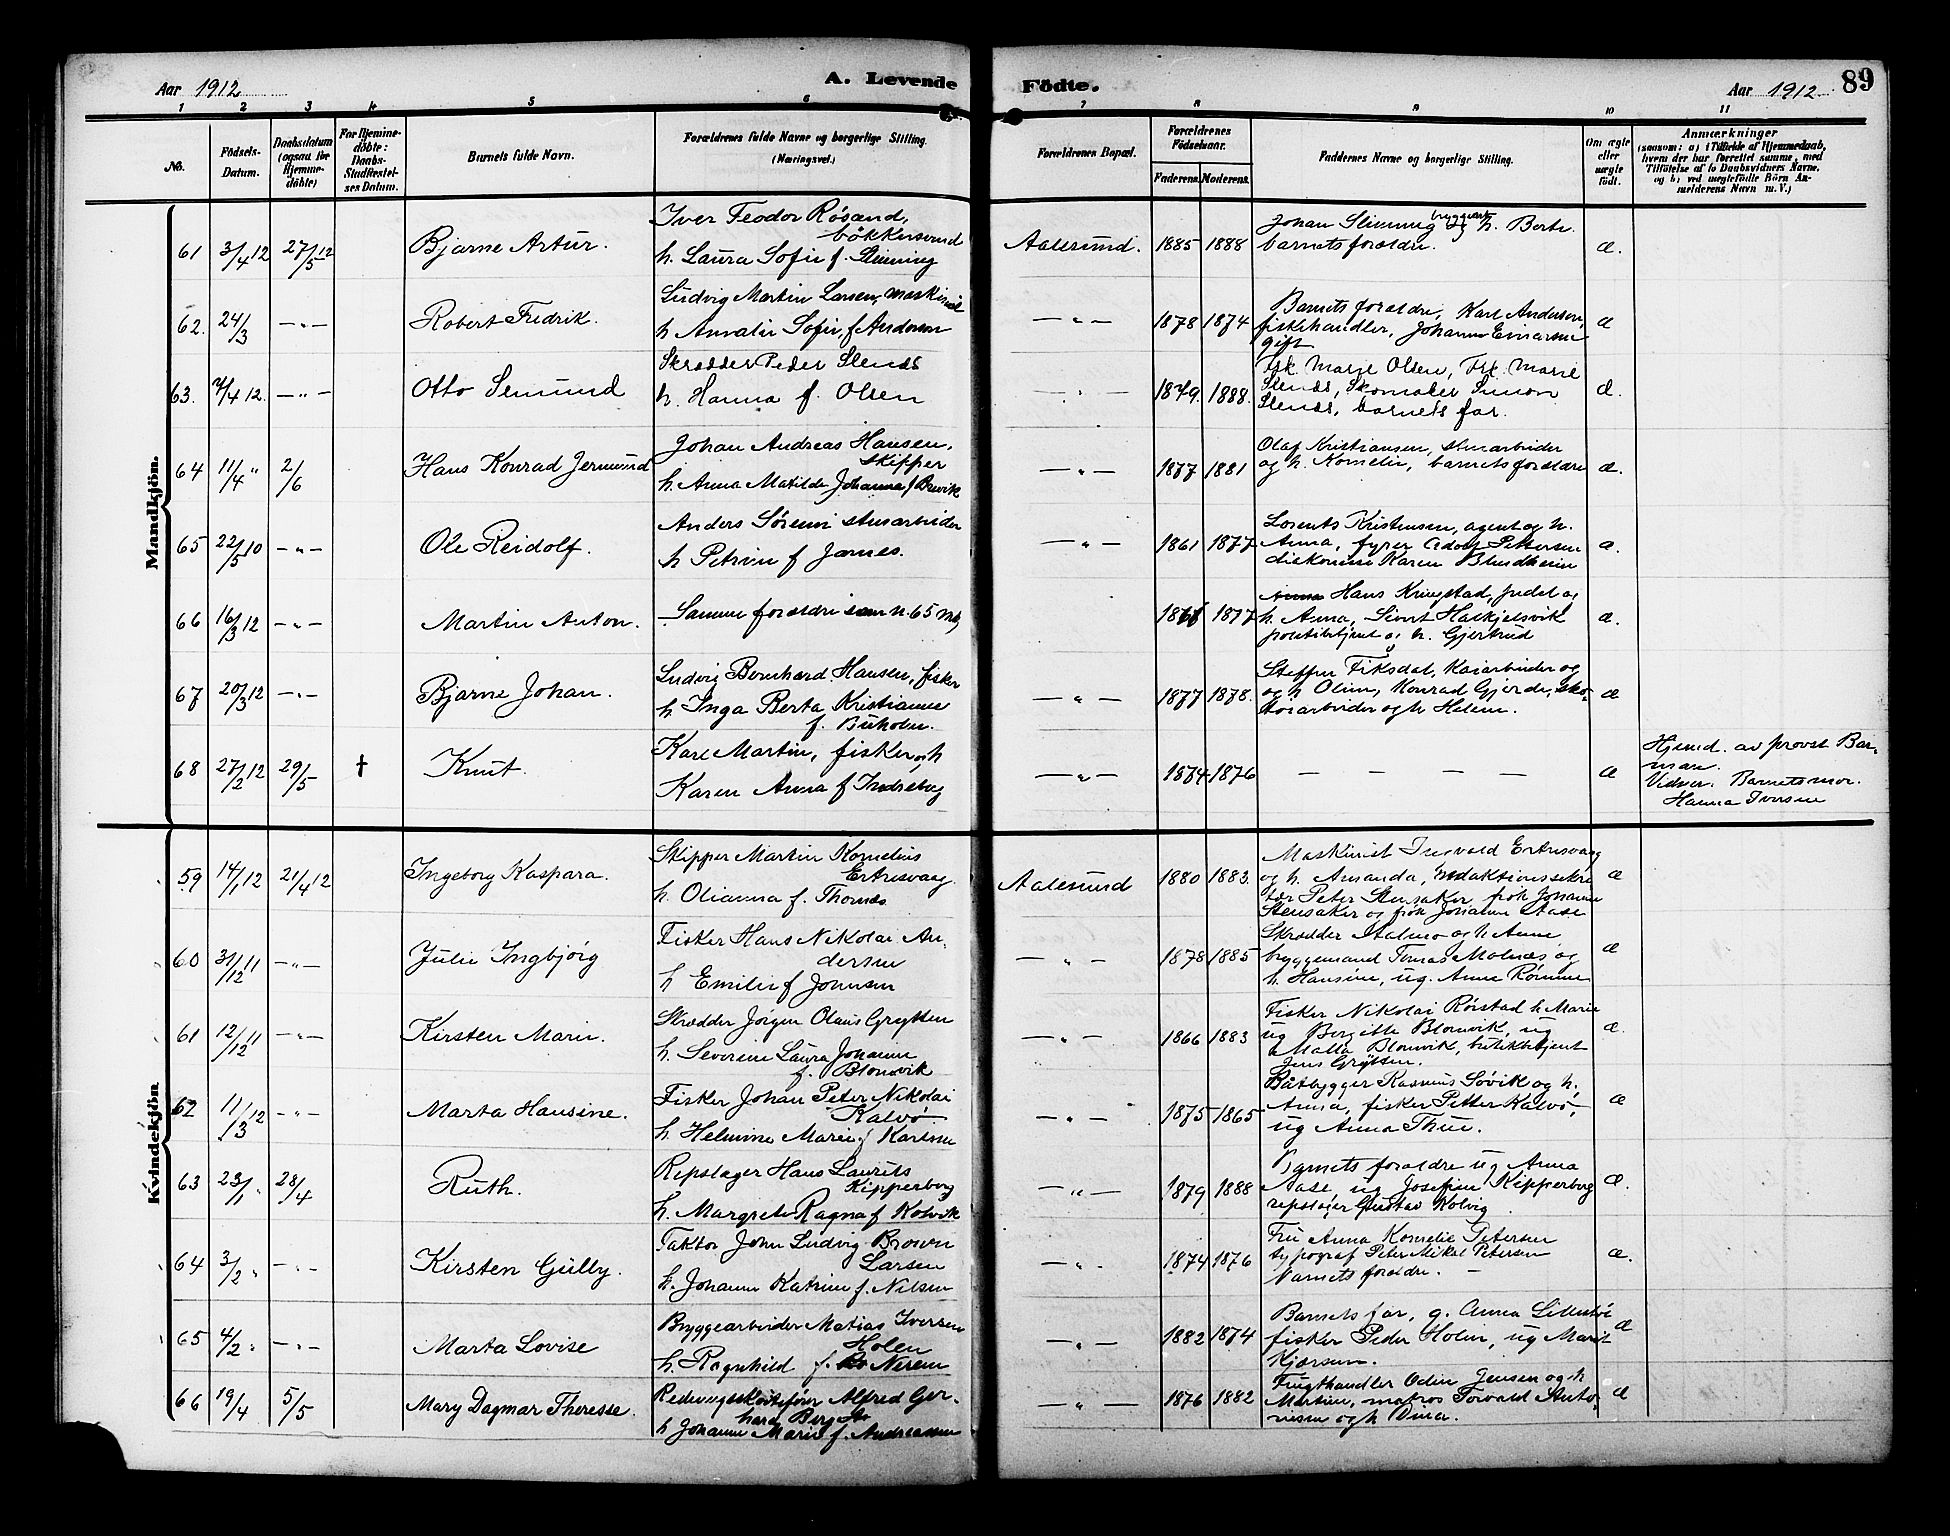 Aar 1912
A. Levende
Födte.
Aar 1912
89
1 2 3 4 5 6 7 8 9 10 11
No.
Födsels-
Datum.
Daabsdatum
(ogsaa for
Hjemme-
döbte)
For Hjemme-
döbte:
Daabs-
Stadfæstel-
ses Datum.
Barnets fulde Navn.
Forældrenes fulde Navne og borgerlige Stilling.
(Næringsvei.)
Forældrenes Bopæl.
Forældrenes
Födselsaar.
Faderens. Moderens.
Faddernes Navne og borgerlige Stilling.
Om ægte
eller
uægte
födt.
Anmærkninger
(saasom: a) i Tilfælde af Hjemmedaab,
hvem der har forrettet samme, med
Tilföielse af to Daabsvidners Navne,
og b) ved uægtefödte Börn An-
melderens Navn m. V.)
Mandkjön.
61 3/4 12 27/5 12 Bjarne Artur.
Iver Teodor Rösand,
bökkersvend
h. Laura Sofie f. Slinning
Aalesund. 1885 1888
Johan Slinning og h. Berte
barnets foraldre.
æ.
62. 24/3 — „ — Robert Fredrik.
Ludvig Martin Larsen, maskinist
h Amalie Sofie, f Andersen
— „ — 1878 1874
Barnets foraldre, Karl Andersen,
fiskehandler, Johanne Einarsen
gift
æ
63. 7/4 12. — „ — Otto Semund
Skrædder Peder Slenes
h. Hanna f. Olsen
— „ — 1879. 1888.
Frk. Marie Olsen, Frk. Marie
Slenes, Skomaker Simon
Slenes, barnets far.
æ.
64 11/4 „ 2/6 Hans Konrad Jermund
Johan Andreas Hansen,
skipper
h. Anna Matilde Johanna f Brevik
— „ — 1877 1881
Olaf Kristiansen, stuearbeider
og h. Kornelie, barnets foraldre
æ.
65 22/5 10 — „ — Ole Reidolf.
Anders Sörenes stuearbeider
h Petrine f James.
— „ — 1861 1877
Lorents Kristensen, agent og h.
Anna, fyrer Adolf Pettersen
diakonisse Karen Blindheim
æ.
66 16/3 12 — „ — Martin Anton.
Samme foraldre som n. 65
1861 1877
Hans Kringstad, pedel og
h. Anna, Sivert Hatkjelsvik
politibetjent og h. Gjertrud
æ.
67 20/3 12 — „ — Bjarne Johan.
Ludvig Bernhard Hansen, fisker
h Inga Berta Kristianne
f. Buholm.
— „ — 1877 1878.
Steffen Fiksdal, Kaiarbeider og
og h Oline, Konrad Gjerde, sko-
töiarbeider og h Helene.
æ
68 27/2 12 29/5 † Knut.
Karl Martin, fisker og h
Karen Anna f Indrebug
— „ — 1874 1876
— — — —
æ
Hjemd. av provst Bar-
man.
Vidner. Barnets mor.
Hanna Iversen
Kvindekjön
59 14/1 12 21/4 12 Ingeborg Kaspara.
Skipper Martin Kornelius
Ertesvaag.
h. Olianna f. Thornes
Aalesund 1880 1883.
Maskinist Ingvald Ertesvaag
og h. Amanda, redaktionssekre
tær Peter Stensaker frök Johanne
Stensaker og frök Johanne Aase
æ
60 31/12 11 — „ — Julie Ingbjörg
Fisker Hans Nikolai An-
dersen
h Emilie f Johnsen
— „ — 1878 1885
Skrædder Malmo og h Anne
bryggemand Tomas Molnes og
h. Hansine, ug. Anne Rönnen
æ
61 12/12 11 — „ — Kirsten Marie.
Skrædder Jörgen Olaus Grytten
h. Severine Laura Johanne
f. Blomvik
— „ — 1866 1883
Fisker Nikolai Rörstad h Marie
ug Bergitte Blomvik, ug
Malla Blomvik, butikbetjent
Jens Grytten.
æ.
62 11/3 12 — „ — Marta Hansine.
Fisker Johan Peter Nikolai
Kalvö
h. Helmine Marie f Karlsen
— „ — 1875 1865
Båtbygger Rasmus Sövik og h.
Anna, fisker Petter Kalvö,
ug Anna Thue.
æ
63 23/1 „ 28/4 Ruth.
Repslager Hans Laurits
Kipperberg
h. Margrete Ragna f Kolvik
— „ — 1879 1888
Barnets foraldre ug Anna
Aase, ug Josefine Kipperberg
repslager Gustav Kolvig
æ.
64 3/2 „ — „ — Kirsten Gully.
Faktor John Ludvig Brown
Larsen
h. Johanne Katrine f. Nilsen
— „ — 1874 1876
Fru Anna Kornelie Petersen
typograf Peter Mikel Petersen
Barnets foraldre. —
æ.
65 4/2 „ — „ — Marta Lovise
Bryggearbeider Matias Iversen
Holen
h. Ragnhild f. Neren
— „ — 1882 1874
Barnets far, g. Anna
fisker Peder Holen, ug Marit
æ
66 19/4 5/5 Mary Dagmar Theresse.
Alfred Ger-
hard Berg
h Johanne Marie f. Andreassen
— „ — 1876 1882
Frugthandler Odin Jensen og h
Martine, matros Torvald Anto-
niesen og h Dina.
æ